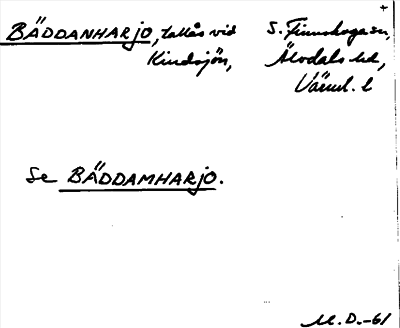 BÄDDANHARJO, tallås vid S. Finnskoga sn,
Kindsjön, Älvdals hd,
Värml. l
Se BÄDDAMHARJO.
M.D.-61